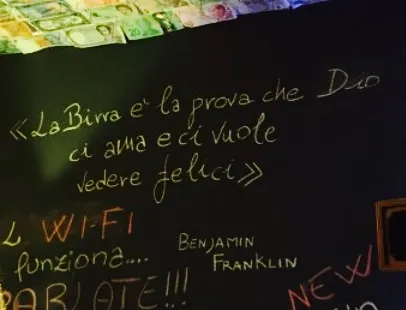 «La Birra e' la prova che Dio
ci ama e ci vuole
vedere felici»
BENJAMIN
FRANKLIN
L WI-FI
funziona....
PARLATE!!!
NEW